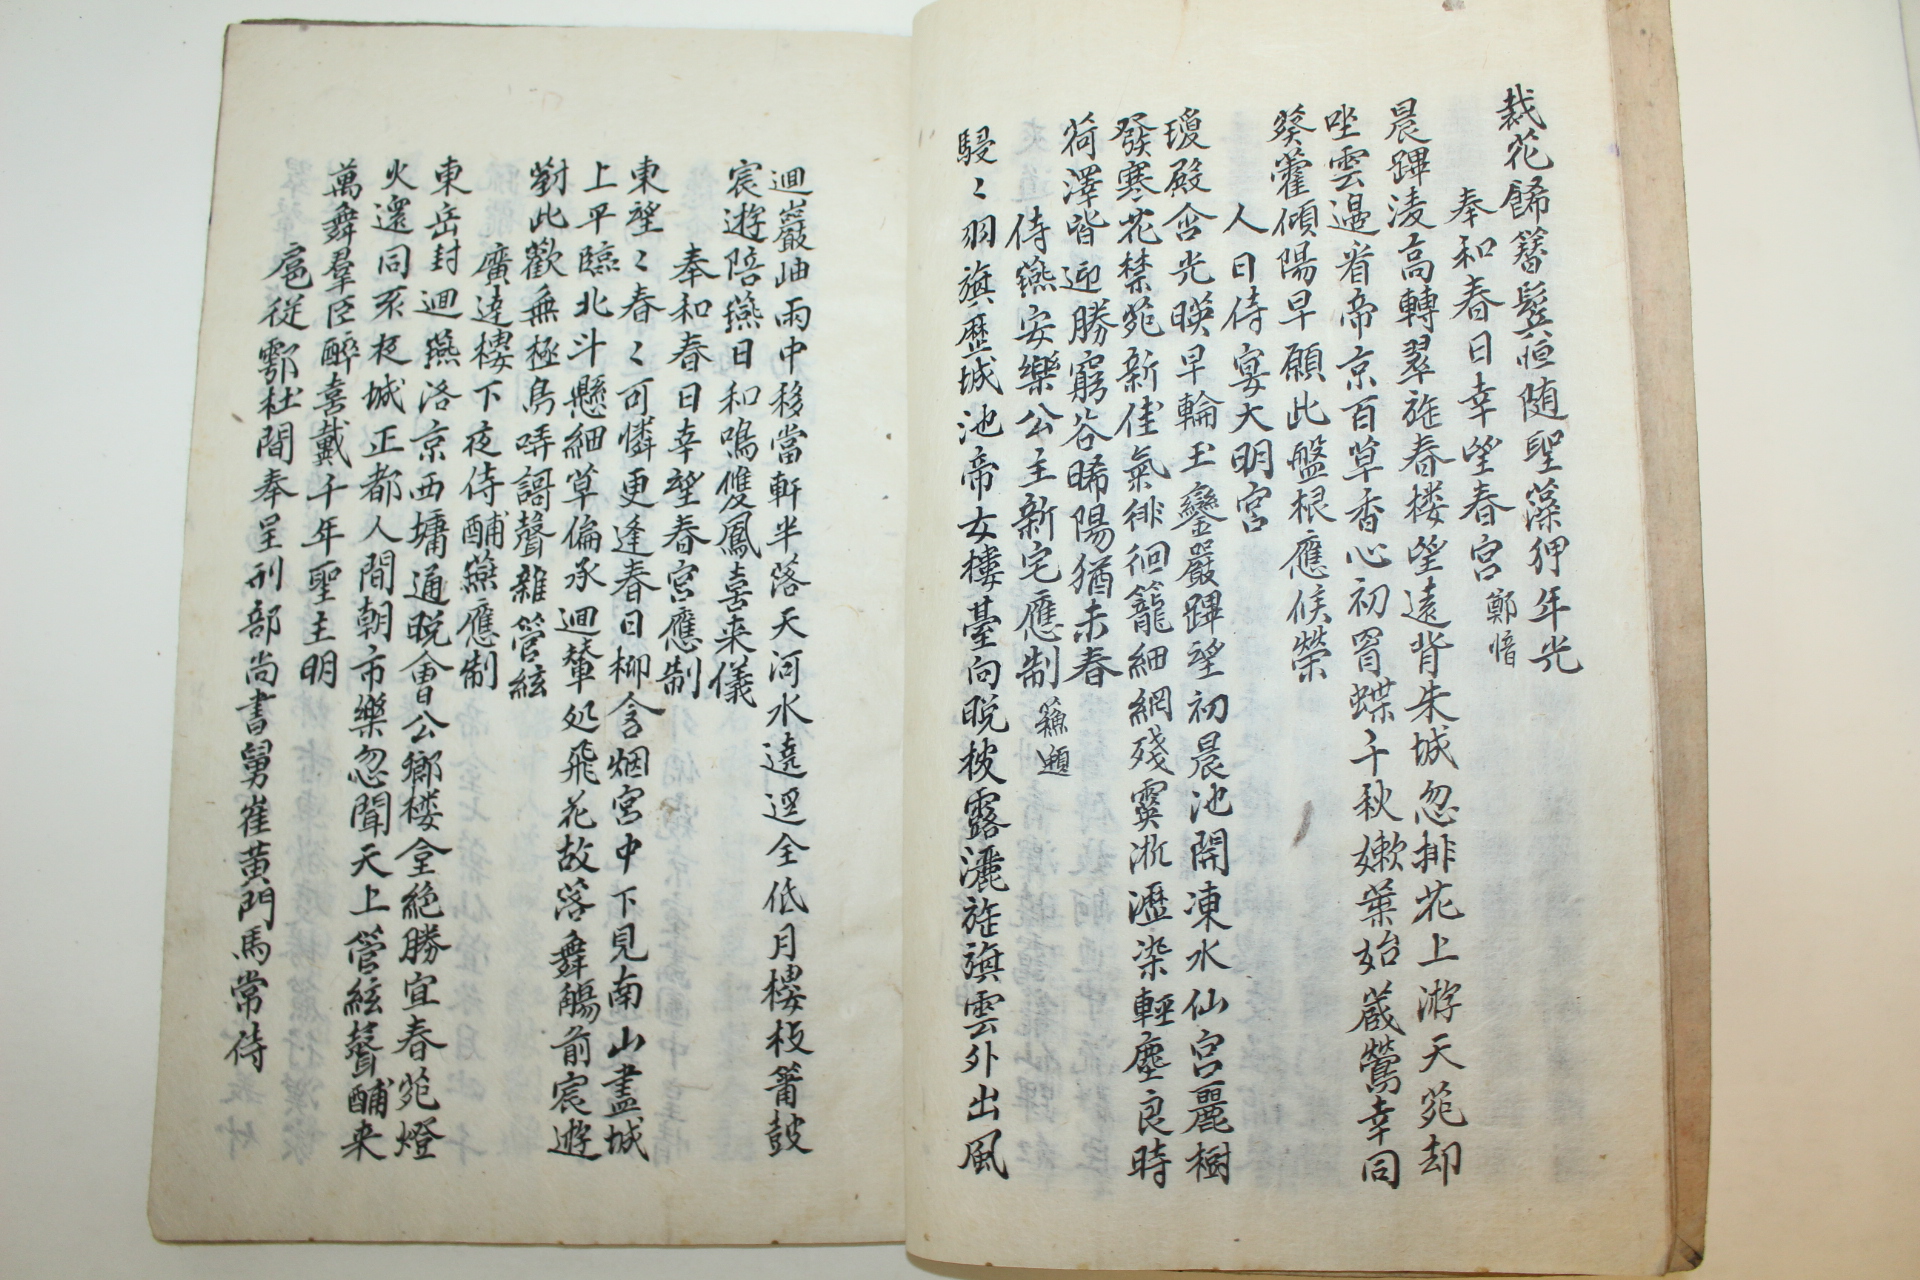 裁花餙簪髮恒随聖藻狎年光
奉和春日幸望春宮 鄭愔
晨蹕凌高轉翠旌春楼望遠背朱城忽排花上游天苑却
坐雲邉看帝京百草香心初罥蝶千秋嫰葉始蔵鶯幸同
葵藿傾陽早願此盤根應候榮
人日侍宴大明宮
瓊殿含光暎早輪玉鑾嚴蹕望初晨池開凍水仙宮麗樹
發寒花禁苑新佳氣徘徊籠細網殘霙淅瀝染輕塵良時
荷澤皆迎勝窮谷晞陽猶未春
侍燕安樂公主新宅應制 蘓頲
駸〻羽旗歷城池帝女樓臺向晚披露灑旌旗雲外出風
迴巖岫雨中移當軒半落天河水遶逕全低月樓枝簫鼓
宸遊陪燕日和鳴雙鳳喜来儀
奉和春日幸望春宮應制
東望〻春〻可憐更逢春日柳含烟宮中下見南山盡城
上平臨北斗懸細草偏承迴輦処飛花故落舞觴前宸遊
對此歡無極鳥哢謌聲雜管絃
廣達樓下夜侍酺燕應制
東岳封迴燕洛京西墉通晚會公鄉楼臺絶勝宜春苑燈
火還同不夜城正都人間朝市樂忽聞天上管絃聲酺来
萬舞羣臣醉喜戴千年聖主明
扈従鄠杜間奉呈刑部尚書舅崔黃門馬常侍